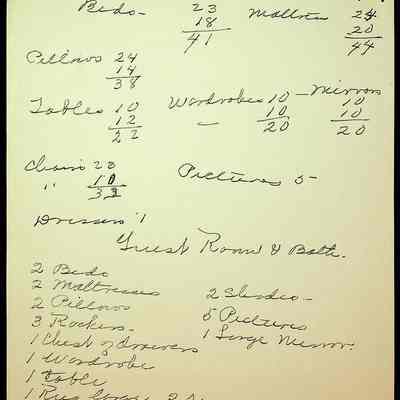 Beds - 23 Mattress 24
18 20
41 44
Pillows 24
14
38
Tables 10 Wardrobes 10 - Mirrors 10
12 10 10
22 20 20
Chairs 23 Pictures 5
" 10
33
Dressers 1
Guest Room & Bath.
2 Beds
2 Mattresses 2 Shades -
2 Pillows 5 Pictures
3 Rockers. 1 Large Mirror.
1 Chest of drawers
1 Wardrobe
1 table
1 Rug